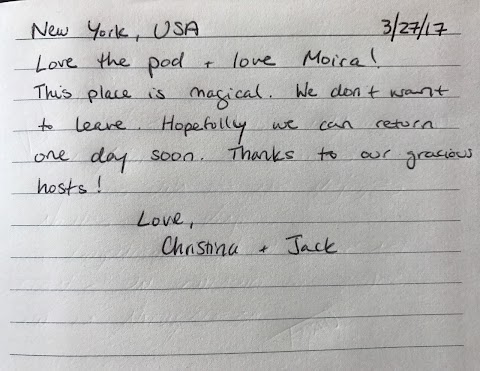 New York, USA 3/27/17
Love the pod + love Moira!
This place is magical. We don't want
to leave. Hopefully we can return
one day soon. Thanks to our gracious
hosts!
Love,
Christina + Jack